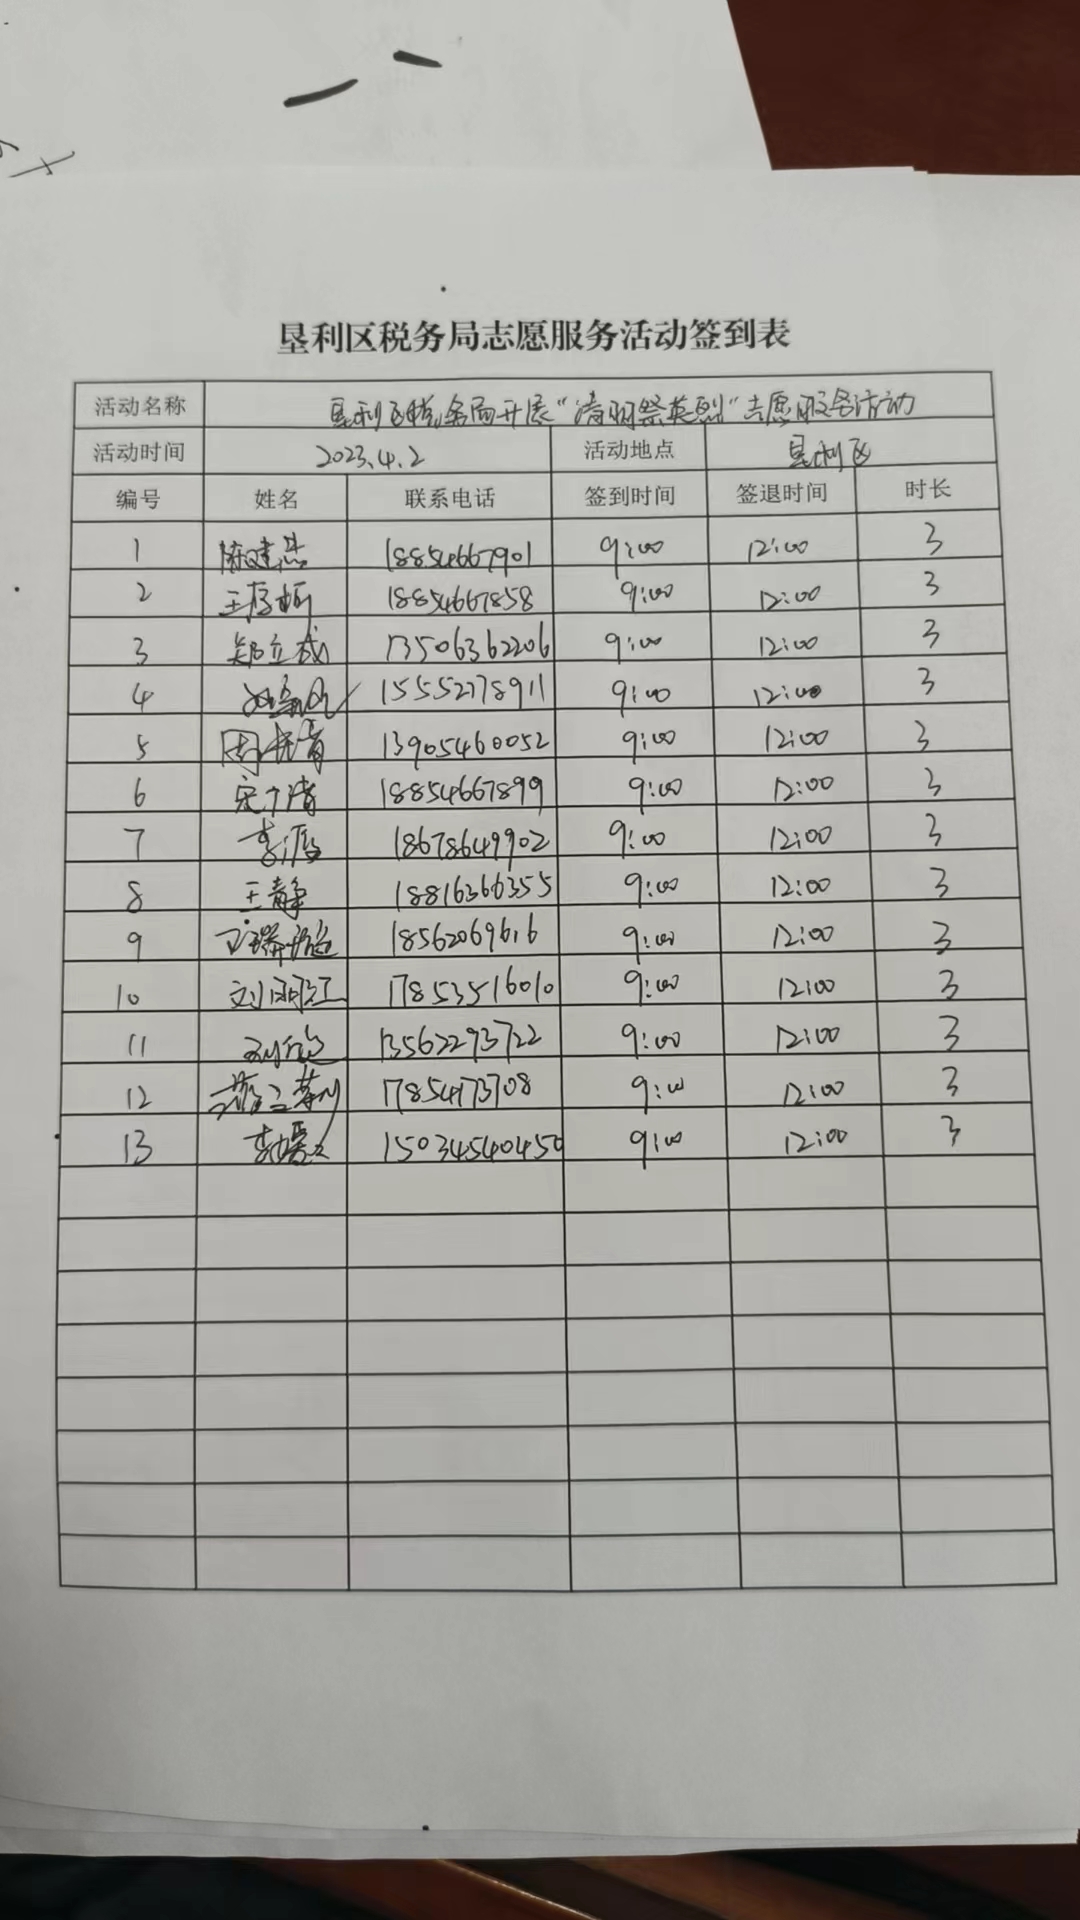 垦利区税务局志愿服务活动签到表
活动名称 垦利区税务局开展“清明祭英烈”志愿服务活动
活动时间 2023.4.2 活动地点 垦利区
编号 姓名 联系电话 签到时间 签退时间 时长
1 陈建杰 18854667901 9:00 12:00 3
2 18854667858 9:00 12:00 3
3 郑立成 13506362206 9:00 12:00 3
4 15552778911 9:00 12:00 3
5 13905460052 9:00 12:00 3
6 18854667899 9:00 12:00 3
7 18678649902 9:00 12:00 3
8 王静 18816366355 9:00 12:00 3
9 18562069616 9:00 12:00 3
10 17853516010 9:00 12:00 3
11 13562293722 9:00 12:00 3
12 17854173708 9:00 12:00 3
13 150345540450 9:00 12:00 3